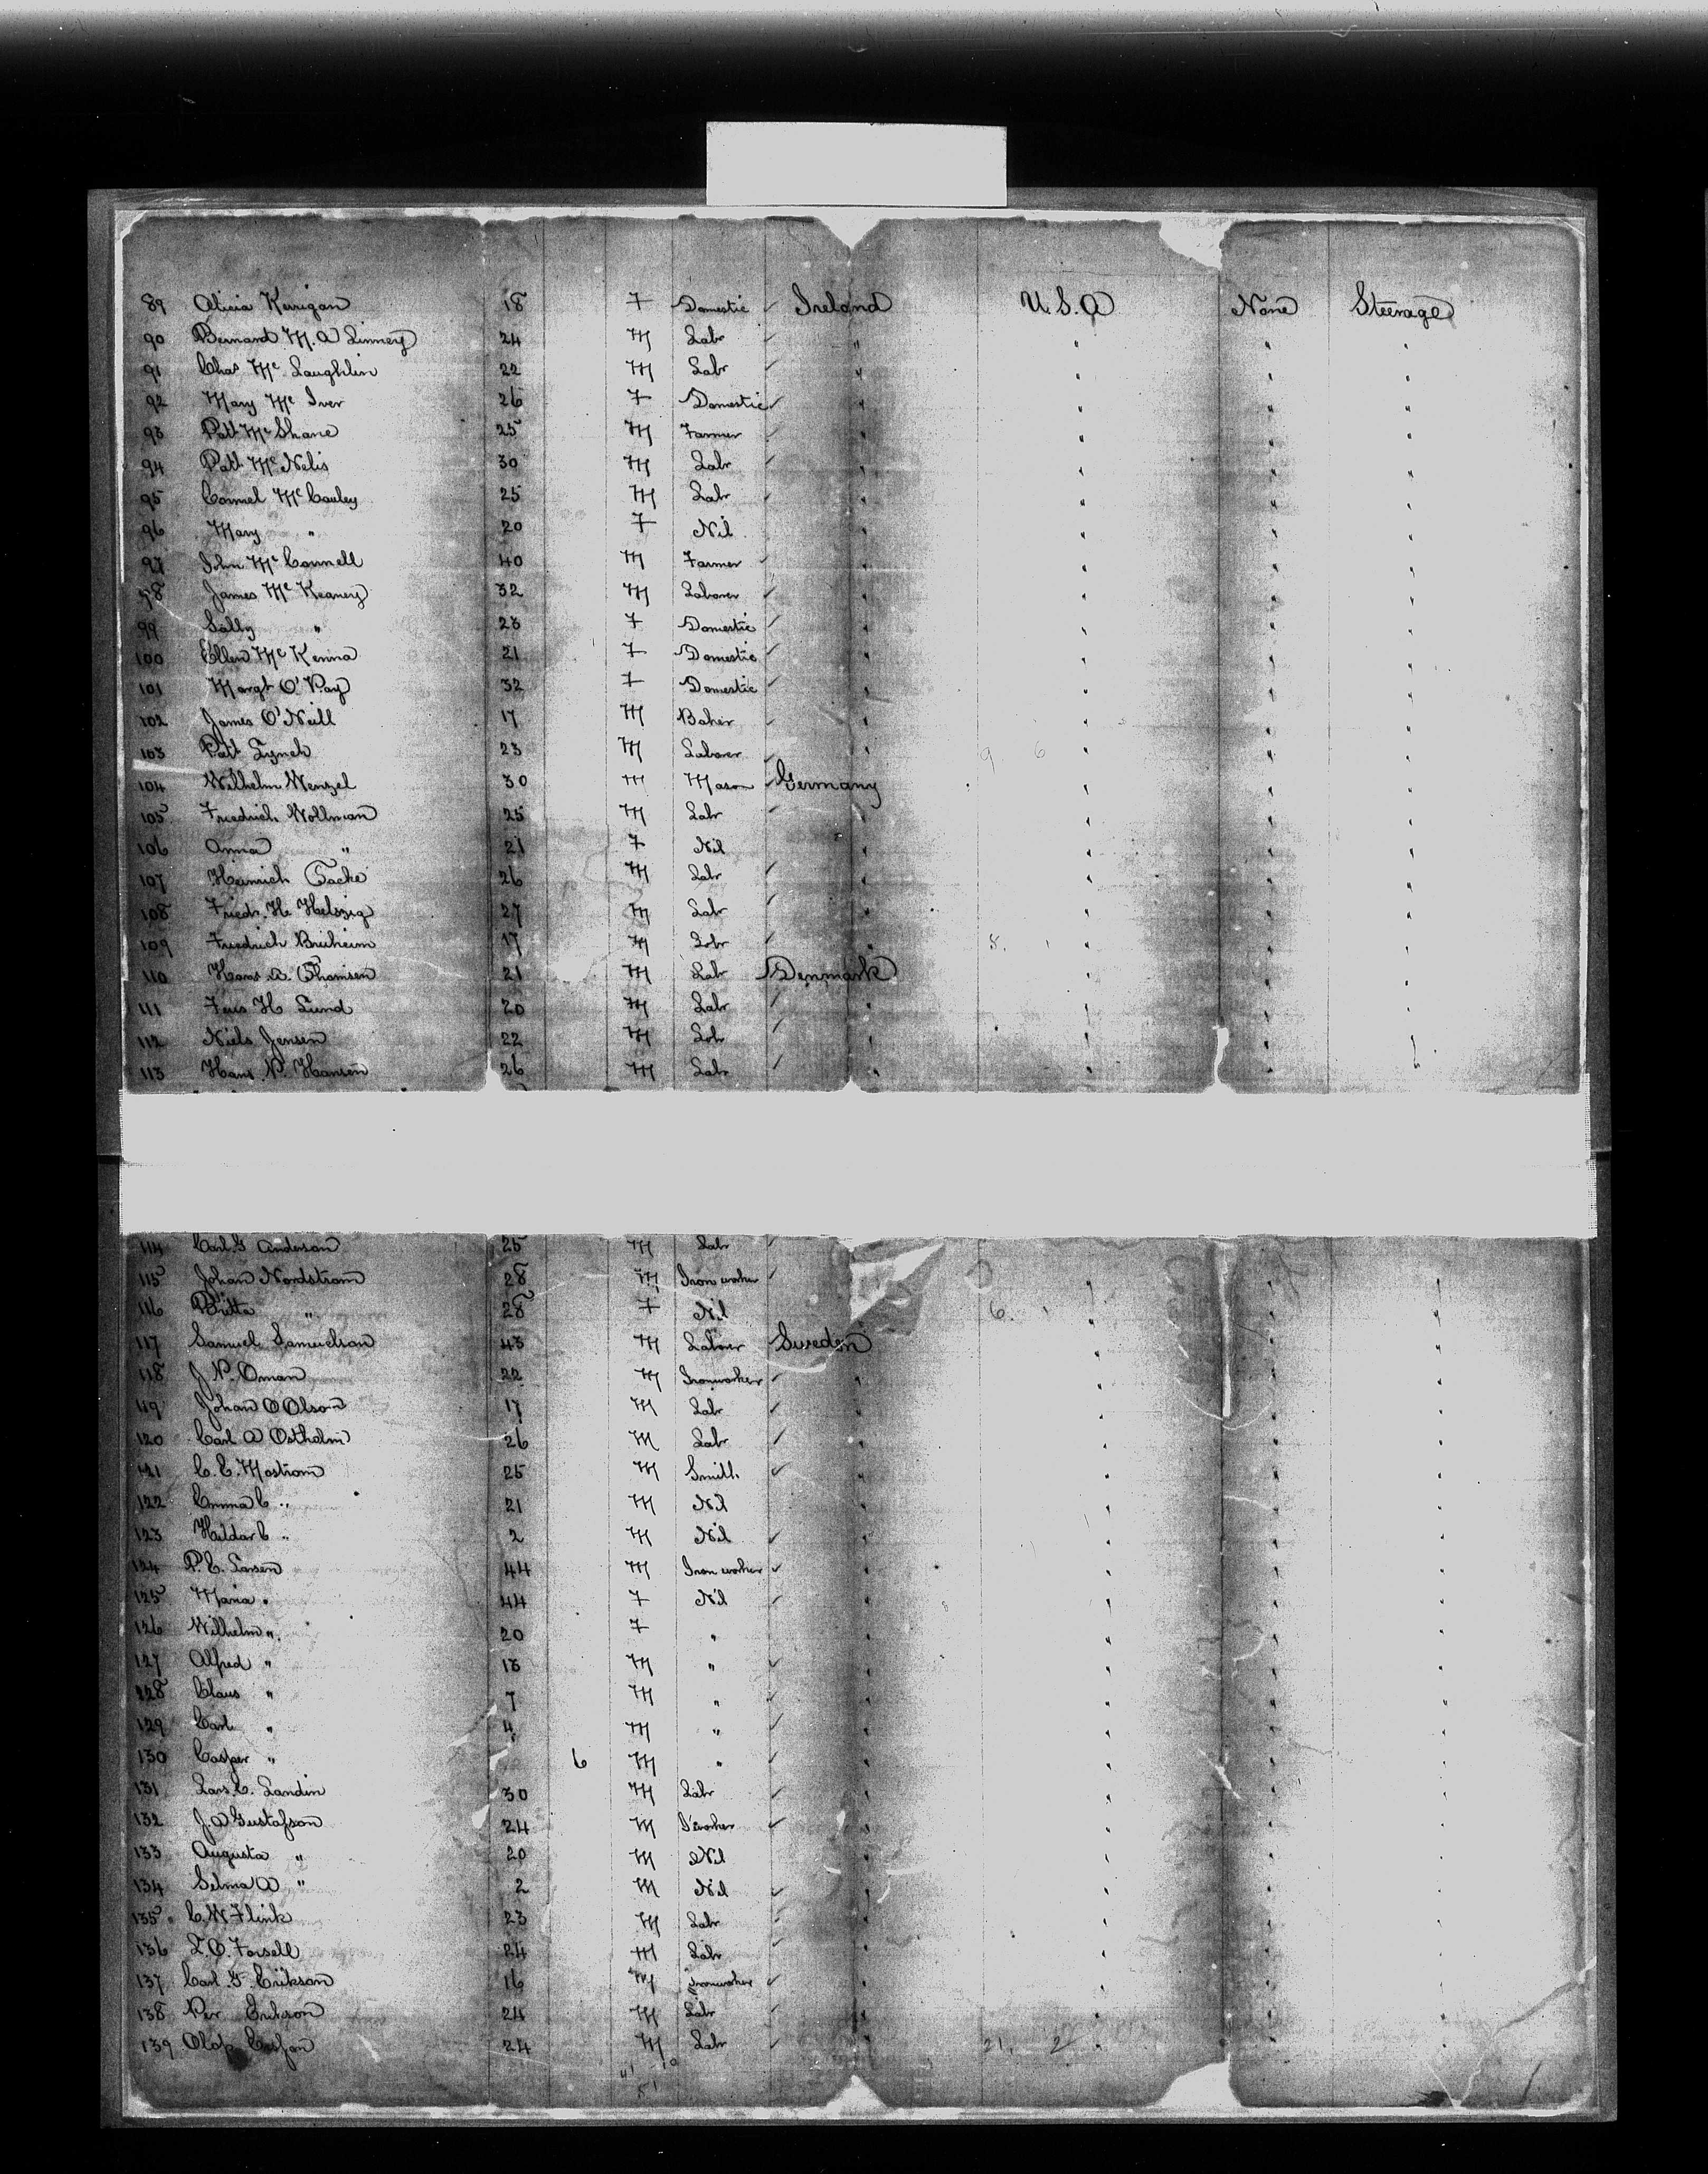 89 Alicia Kerrigan 18 F Domestic ✓ Ireland U.S.A None Steerage
90 Bernard M. A Linney 24 M Labr ✓ " " " "
91 Chas Mc Laughlin 22 M Labr ✓ " " " "
92 Mary Mc Iver 26 F Domestic ✓ " " " "
93 Patt Mc Shane 25 M Farmer ✓ " " " "
94 Patt Mc Nelis 30 M Labr ✓ " " " "
95 Connel Mc Cauley 25 M Labr ✓ " " " "
96 Mary " 20 F Nil " " " "
97 John Mc Connell 40 M Farmer ✓ " " " "
98 James Mc Keaney 32 M Laborer ✓ " " " "
99 Sally " 23 F Domestic ✓ " " " "
100 Ellen Mc Kenna 21 F Domestic ✓ " " " "
101 Margt O' 32 F Domestic ✓ " " " "
102 James O'Neill 17 M Baker ✓ " " " "
103 Patt Lynch 23 M Laborer ✓ " 9 6 " " "
104 Wilhelm Wenzel 30 M Mason ✓ Germany " " "
105 Friedrich Wollman 25 M Labr ✓ " " " "
106 Anna " 21 F Nil " " " "
107 Heinrich Tacke 26 M Labr ✓ " " " "
108 Friedr. H. 27 M Labr ✓ " " " "
109 Friedrich 17 M Labr ✓ " 8. 1 " " "
110 Hans A. Thomsen 21 M Labr Denmark " " "
111 H Lund 20 M Labr ✓ " " " "
112 Niels Jensen 22 M Labr ✓ " " " "
113 Hans P. Hansen 26 M Labr ✓ " " " "
114 Carl G Anderson 25 M Labr ✓
115 Johan Nordstrom 28 M Iron worker ✓ " " "
116 Britta " 28 F Nil 6. 1 " " "
117 Samuel Samuelson 43 M Laborer Sweden " " "
118 J P. Oman 22 M Ironworker ✓ " " " "
119 Johan O Olson 17 M Labr ✓ " " " "
120 Carl A Ostholm 26 M Labr ✓ " " " "
121 C. E. Mostrom 25 M Smith ✓ " " " "
122 Emma C " 21 M Nil " " " "
123 Hildar C " 2 M Nil ✓ " " " "
124 P. E. Larsen 44 M Iron worker ✓ " " " "
125 Maria " 44 F Nil ✓ " " " "
126 Wilhelm " 20 F " " " " "
127 Alfred " 18 M " ✓ " " " "
128 Claus " 7 M " ✓ " " " "
129 Carl " 4 M " ✓ " " " "
130 Casper " 6 M " ✓ " " " "
131 Lars E. Landin 30 M Labr ✓ " " " "
132 J. A Gustafson 24 M I'worker ✓ " " " "
133 Augusta " 20 M Nil " " " "
134 Selma A " 2 M Nil ✓ " " " "
135 C. W Flink 23 M Labr ✓ " " " "
136 L. O. Forsell 24 M Labr ✓ " " " "
137 Carl G. Erikson 16 M Ironworker ✓ " " " "
138 Per Erikson 24 M Labr ✓ " " " "
139 Olof 24 M Labr ✓ " 21. 2 " " "